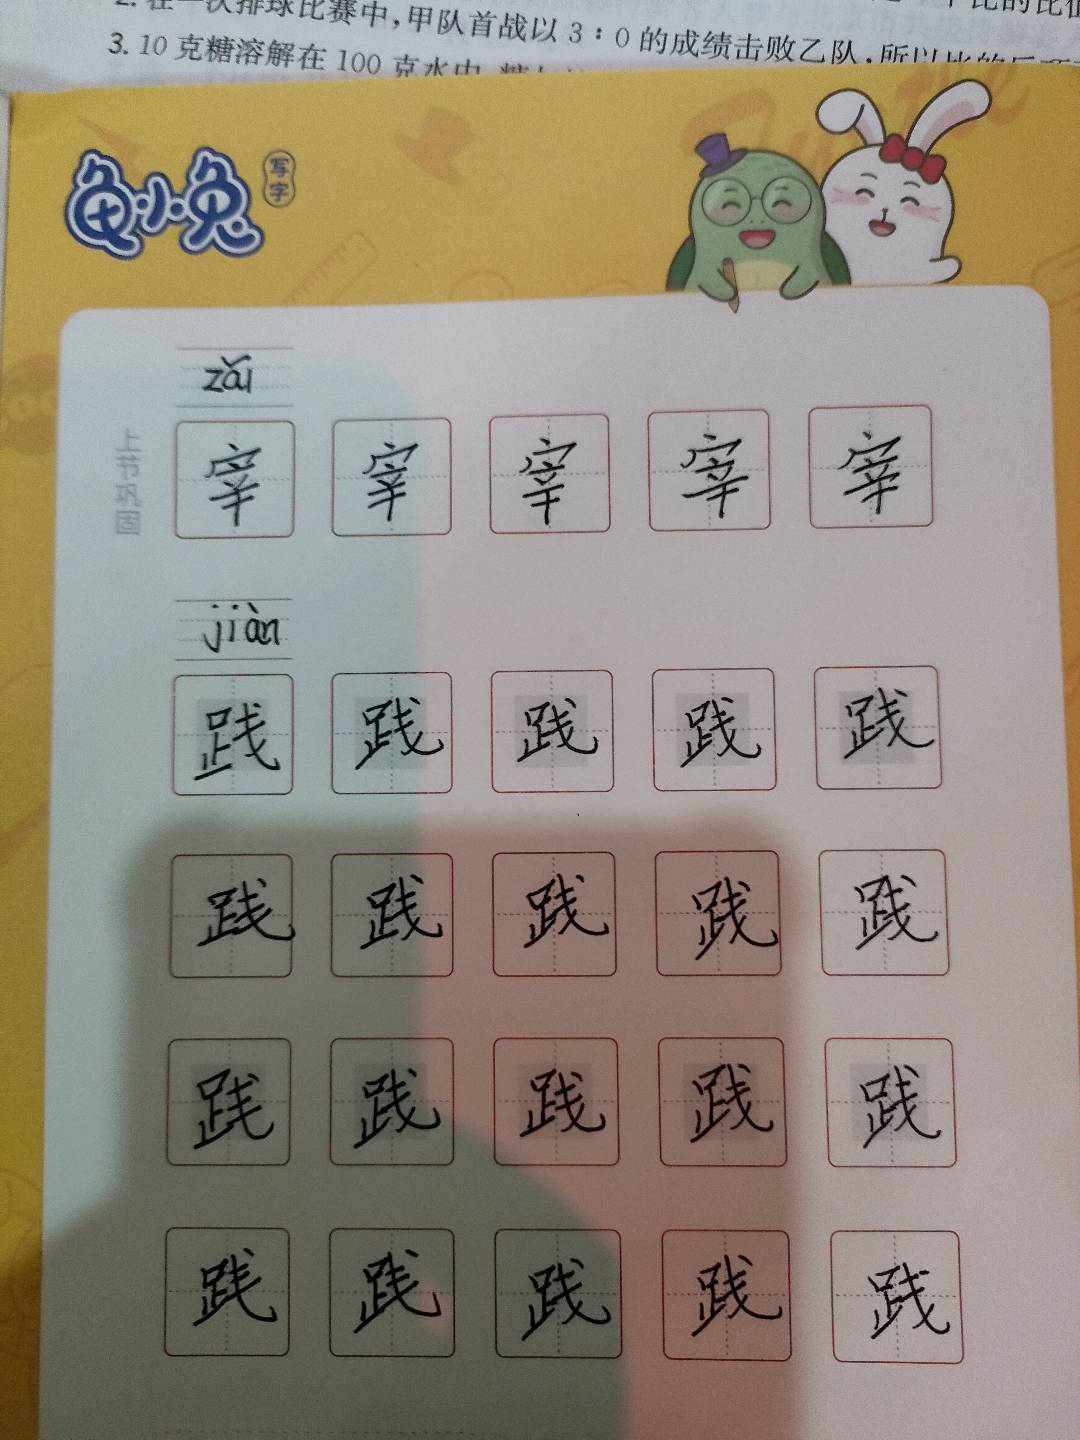 2. 在一次排球比赛中，甲队首战以 3：0 的成绩击败乙队，所以比的后项
3. 10 克糖溶解在 100 克水中，糖
龟小兔 写字
zǎi
上节巩固
宰 宰 宰 宰 宰
jiàn
践 践 践 践 践
践 践 践 践 践
践 践 践 践 践
践 践 践 践 践